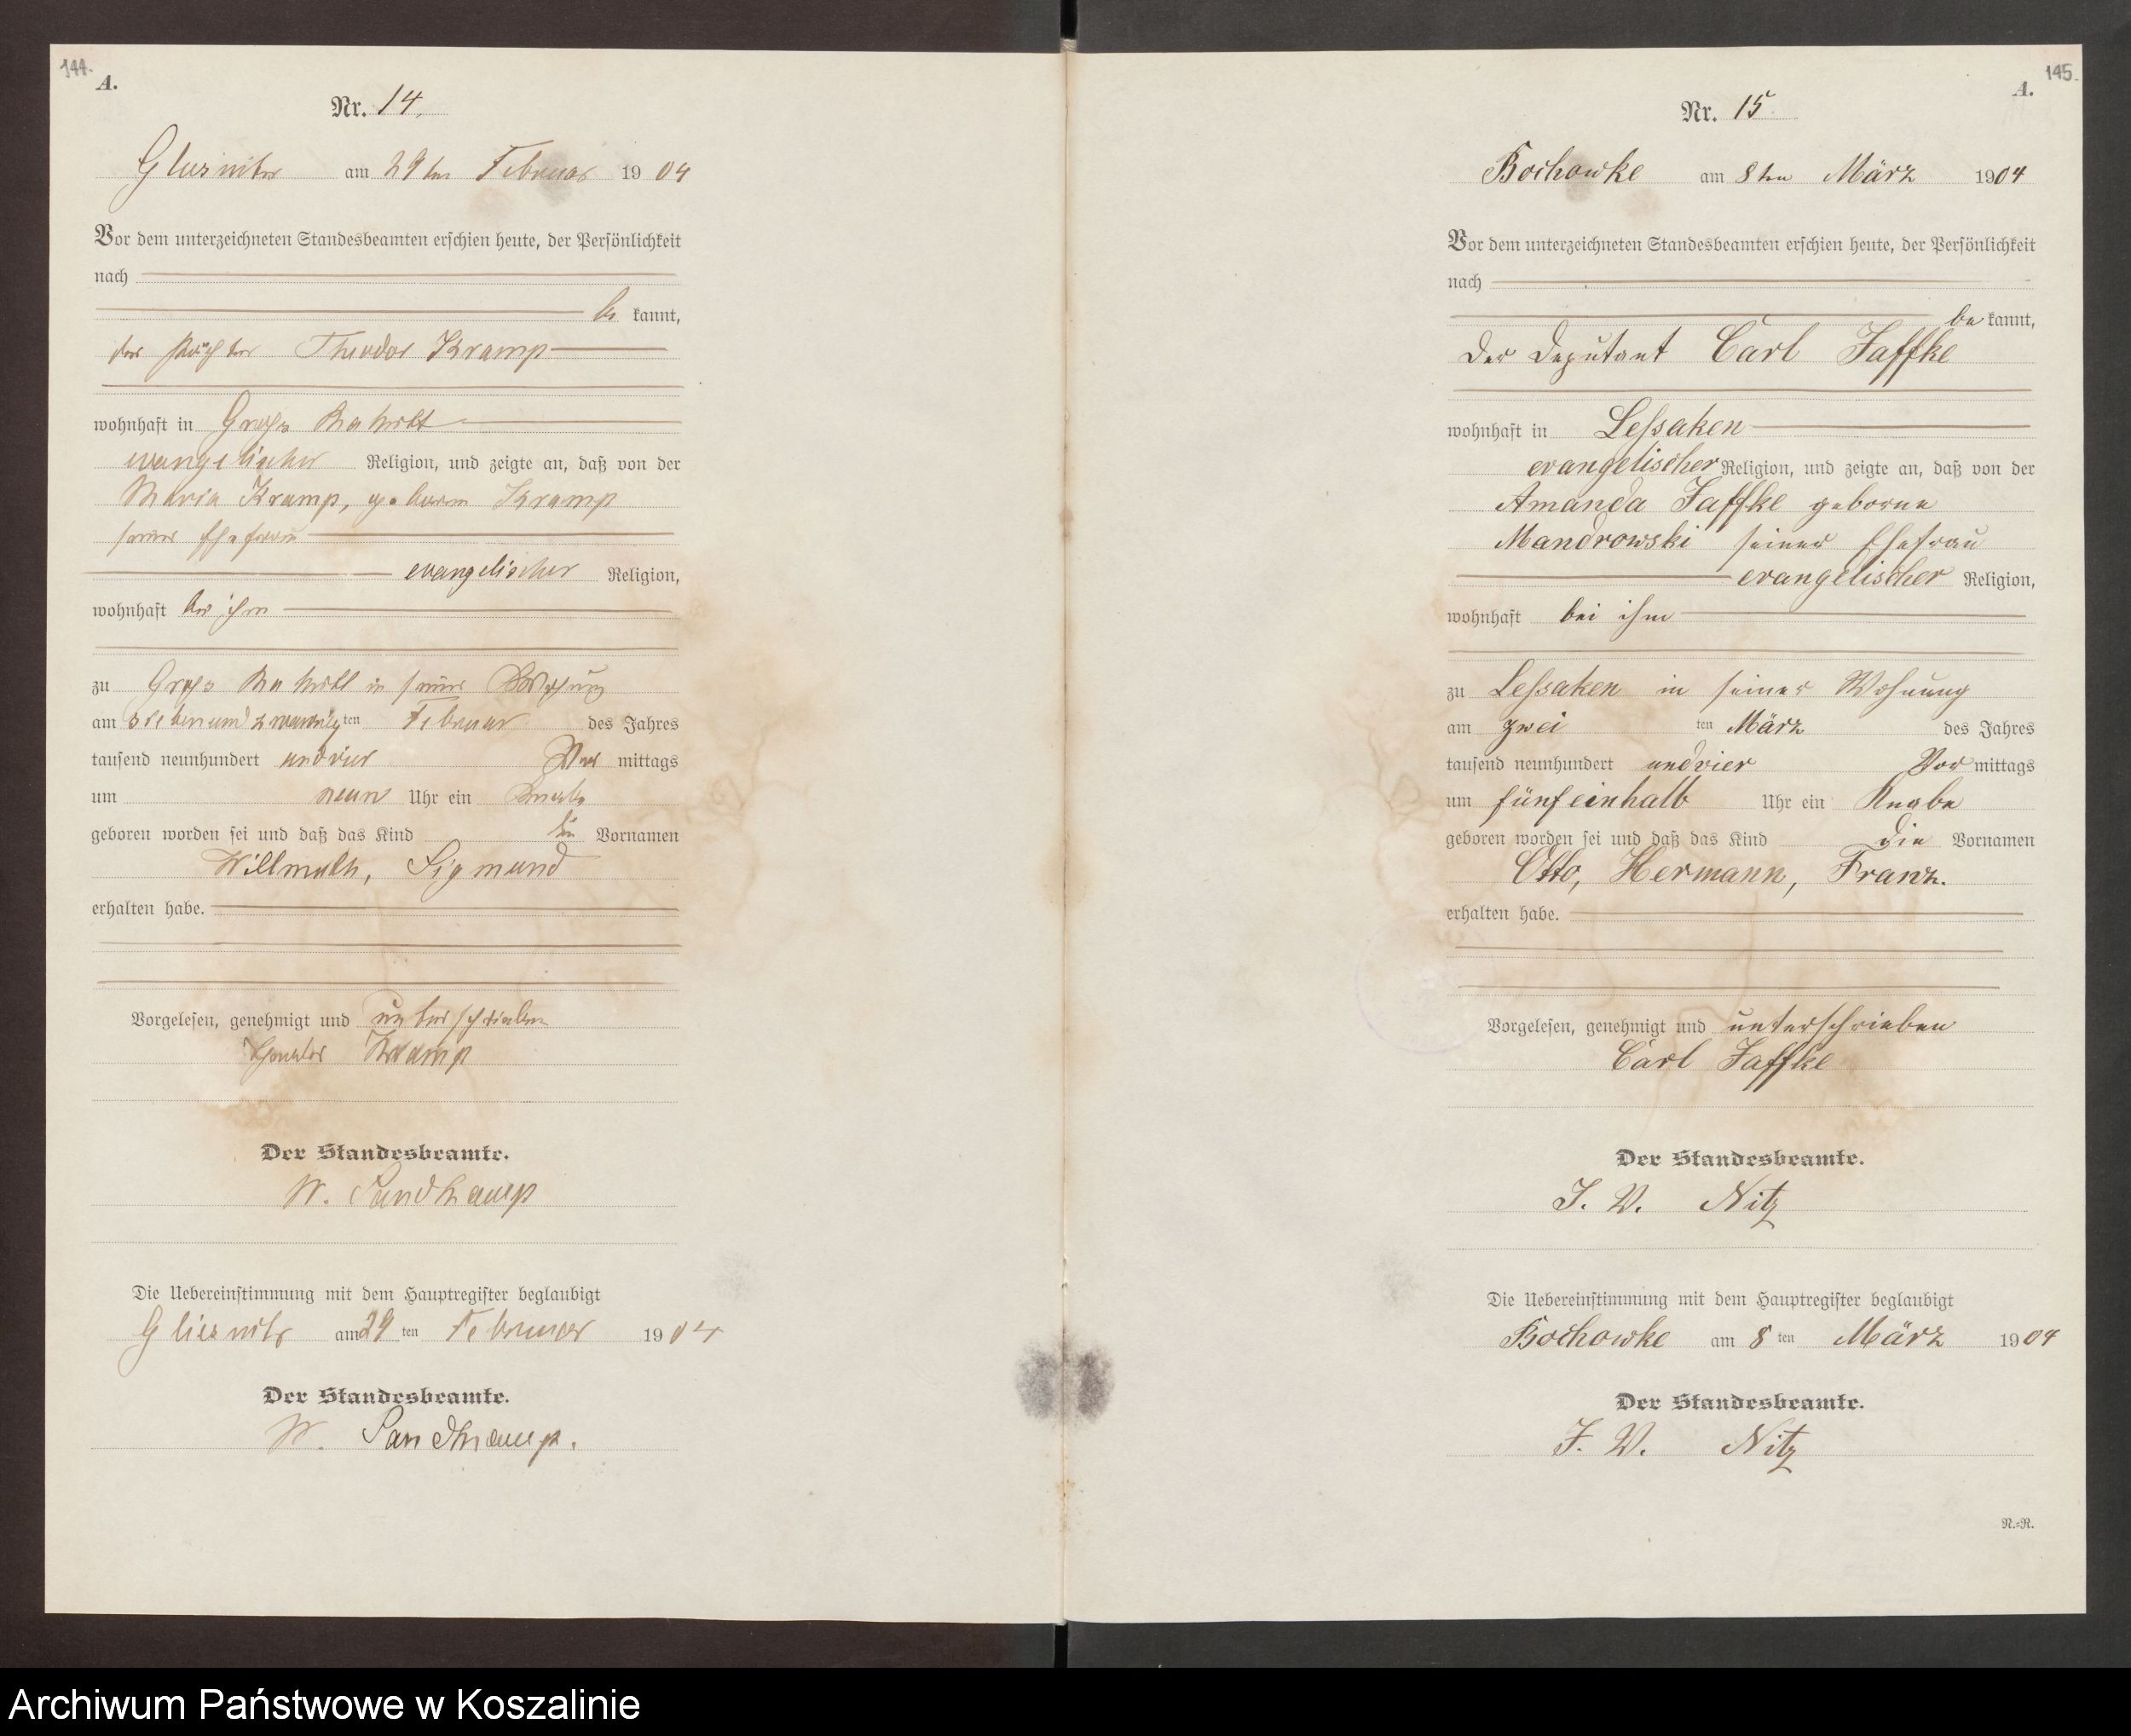 144.
A.
Nr. 14.
am 29ten Februar 1904
Vor dem unterzeichneten Standesbeamten erschien heute, der Persönlichkeit
nach
be kannt,
der Pächter Theodor Kramp
wohnhaft in Groß
evangelischer Religion, und zeigte an, daß von der
Maria Kramp, geboren Kramp
seiner Ehefrau
evangelischer Religion,
wohnhaft bei ihm
zu Groß in seiner Wohnung
am siebenundzwanzigten Februar des Jahres
tausend neunhundert undvier Vor mittags
um neun Uhr ein Knabe
geboren worden sei und daß das Kind die Vornamen
Willmuth, Sigmund
erhalten habe.
Vorgelesen, genehmigt und unterschrieben
Kramp
Der Standesbeamte.
W. Sandkamp
Die Uebereinstimmung mit dem Hauptregister beglaubigt
am 29 ten Februar 1904
Der Standesbeamte.
W. Sandkamp.
145.
A.
Nr. 15.
Bochowke am 8ten März 1904
Vor dem unterzeichneten Standesbeamten erschien heute, der Persönlichkeit
nach
be kannt,
Der Deputant Carl Jaffke
wohnhaft in Leßaken
evangelischer Religion, und zeigte an, daß von der
Amanda Jaffke geborne
Mandrowski seiner Ehefrau
evangelischer Religion,
wohnhaft bei ihm
zu Leßaken in seiner Wohnung
am zwei ten März des Jahres
tausend neunhundert undvier Vor mittags
um fünf einhalb Uhr ein Knabe
geboren worden sei und daß das Kind die Vornamen
Otto, Hermann, Franz.
erhalten habe.
Vorgelesen, genehmigt und unterschrieben
Carl Jaffke
Der Standesbeamte.
J. V. Nitz
Die Uebereinstimmung mit dem Hauptregister beglaubigt
Bochowke am 8 ten März 1904
Der Standesbeamte.
J. V. Nitz
N.=R.
Archiwum Państwowe w Koszalinie